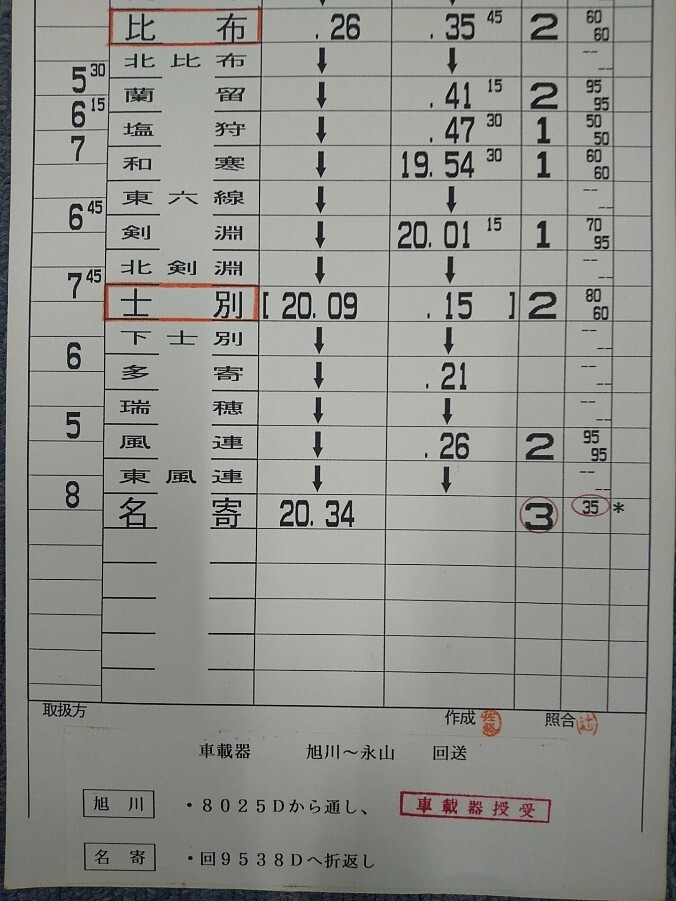 比布 .26 .35 45 2 60 60
5 30
北比布 ↓ ↓ -- --
蘭留 ↓ .41 15 2 95 95
6 15
塩狩 ↓ .47 30 1 50 50
7
和寒 ↓ 19.54 30 1 60 60
東六線 ↓ ↓ -- --
6 45
剣淵 ↓ 20.01 15 1 70 95
北剣淵 ↓ ↓ -- --
7 45
士別 [ 20.09 .15 ] 2 80 60
下士別 ↓ ↓ -- --
6
多寄 ↓ .21 -- --
瑞穂 ↓ ↓ -- --
5
風連 ↓ .26 2 95 95
東風連 ↓ ↓ -- --
8
名寄 20.34 3 35 *
取扱方 作成 照合 辻
車載器 旭川～永山 回送
旭川 ・8025Dから通し、 車載器授受
名寄 ・回9538Dへ折返し